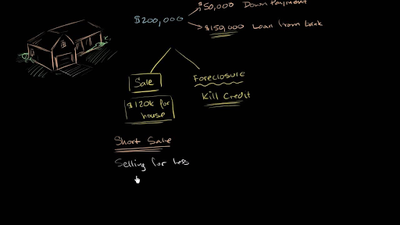 $50,000 Down Payment
$200,000
$150,000 Loan from bank
Sale
Foreclosure
$120k for house
Kill Credit
Short Sale
Selling for less